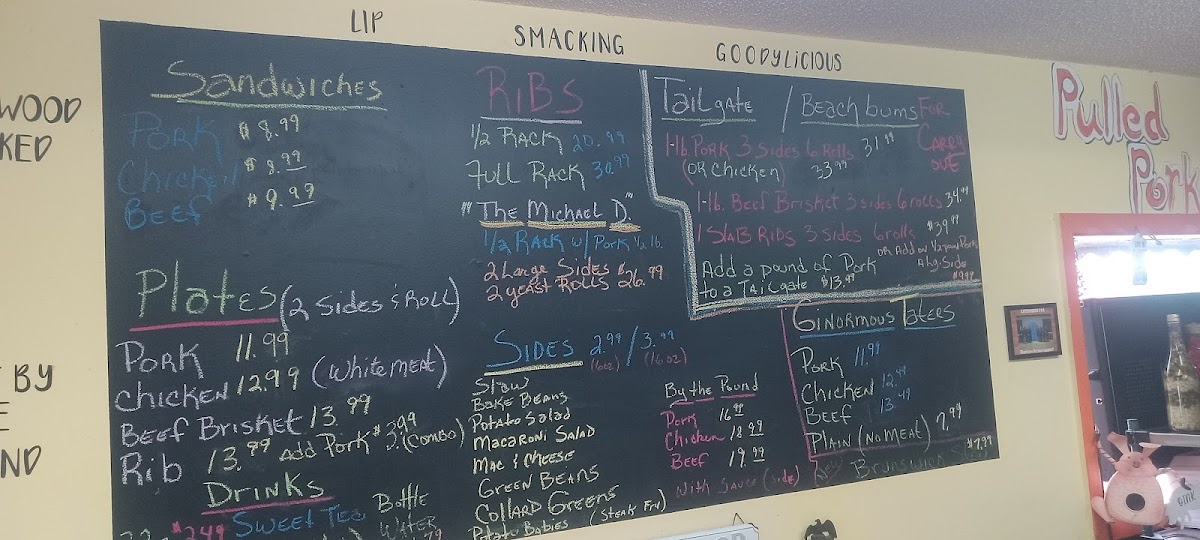 LIP SMACKING GOODYLICIOUS
WOOD
KED
BY
E
ND
Sandwiches
Pork $8.99
Chicken $8.99
Beef $9.99
Plates (2 Sides & Roll)
Pork 11.99
Chicken 12.99 (White meat)
Beef Brisket 13.99
Rib 13.99 Add Pork $ (Combo)
Drinks
$2.49 Sweet Tea Bottle
Water
RiBS
1/2 Rack 20.99
Full Rack 30.99
"The Michael D."
1/2 Rack w/ Pork 1/2 lb.
2 Large Sides $
2 yeast Rolls 26.99
Sides 2.99 / 3.99
(6oz) (16oz)
Slaw
Bake Beans
Potato Salad
Macaroni Salad
Mac & Cheese
Green Beans
Collard Greens
Potato Babies (Steak Fry)
By the Pound
Pork 16.99
Chicken 18.99
Beef 19.99
With Sauce (Side)
Tailgate / Beach bums For Carry out
1-lb Pork 3 Sides 6 Rolls 31.99
(or Chicken) 33.99
1-lb. Beef Brisket 3 sides 6 rolls 34.99
1 Slab Ribs 3 Sides 6 rolls $39.99
or Add on 1/2 pound Pork
Add a pound of Pork
to a Tailgate $13.99
A lg. Side $9.99
Ginormous Taters
Pork 11.99
Chicken 12.49
Beef 13.49
Plain (No Meat) 7.99
Brunswick Stew $7.99
Pulled
Pork
oink